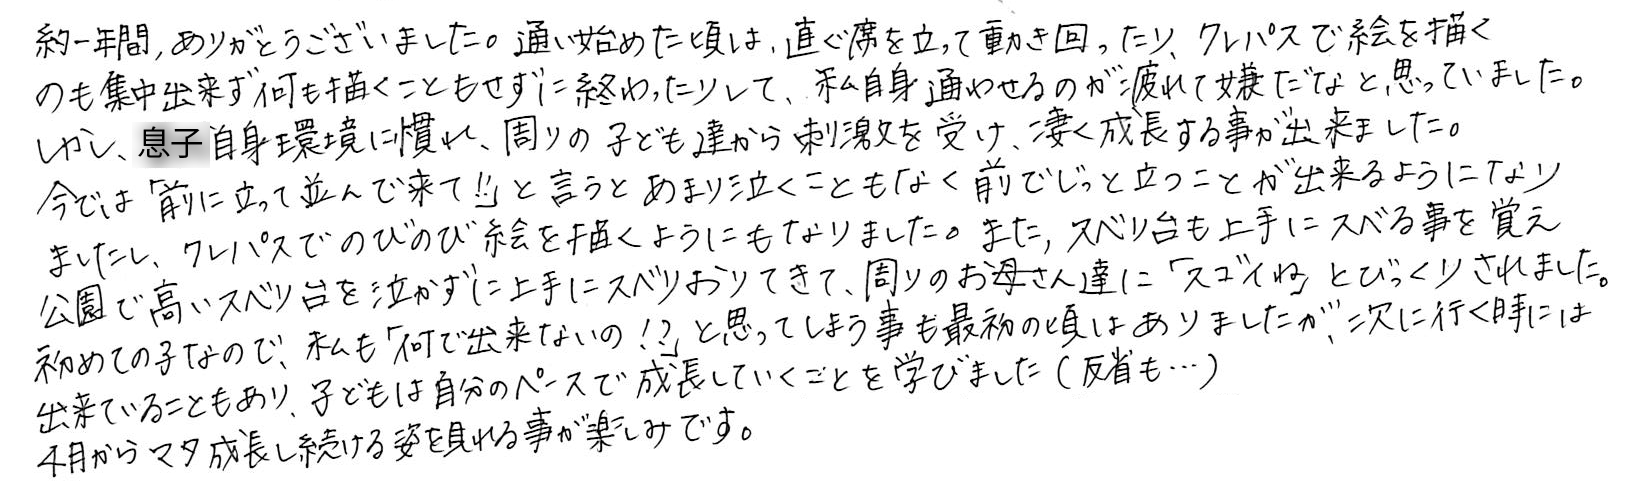 約一年間,ありがとうございました。通い始めた頃は、直ぐ席を立って動き回ったり、クレパスで絵を描く
のも集中出来ず何も描くこともせずに終わったりして、私自身通わせるのが疲れて嫌だなと思っていました。
しかし、息子自身環境に慣れ、周りの子ども達から刺激を受け、凄く成長する事が出来ました。
今では「前に立って並んで来て!!」と言うとあまり泣くこともなく前でじっと立つことが出来るようになり
ましたし、クレパスでのびのび絵を描くようにもなりました。また,スベリ台も上手にスベる事を覚え
公園で高いスベリ台を泣かずに上手にスベりおりてきて、周りのお母さん達に「スゴイね」とびっくりされました。
初めての子なので、私も「何で出来ないの!?」と思ってしまう事も最初の頃はありましたが、次に行く時には
出来ていることもあり、子どもは自分のペースで成長していくことを学びました(反省も…)
4月からマタ成長し続ける姿を見れる事が楽しみです。